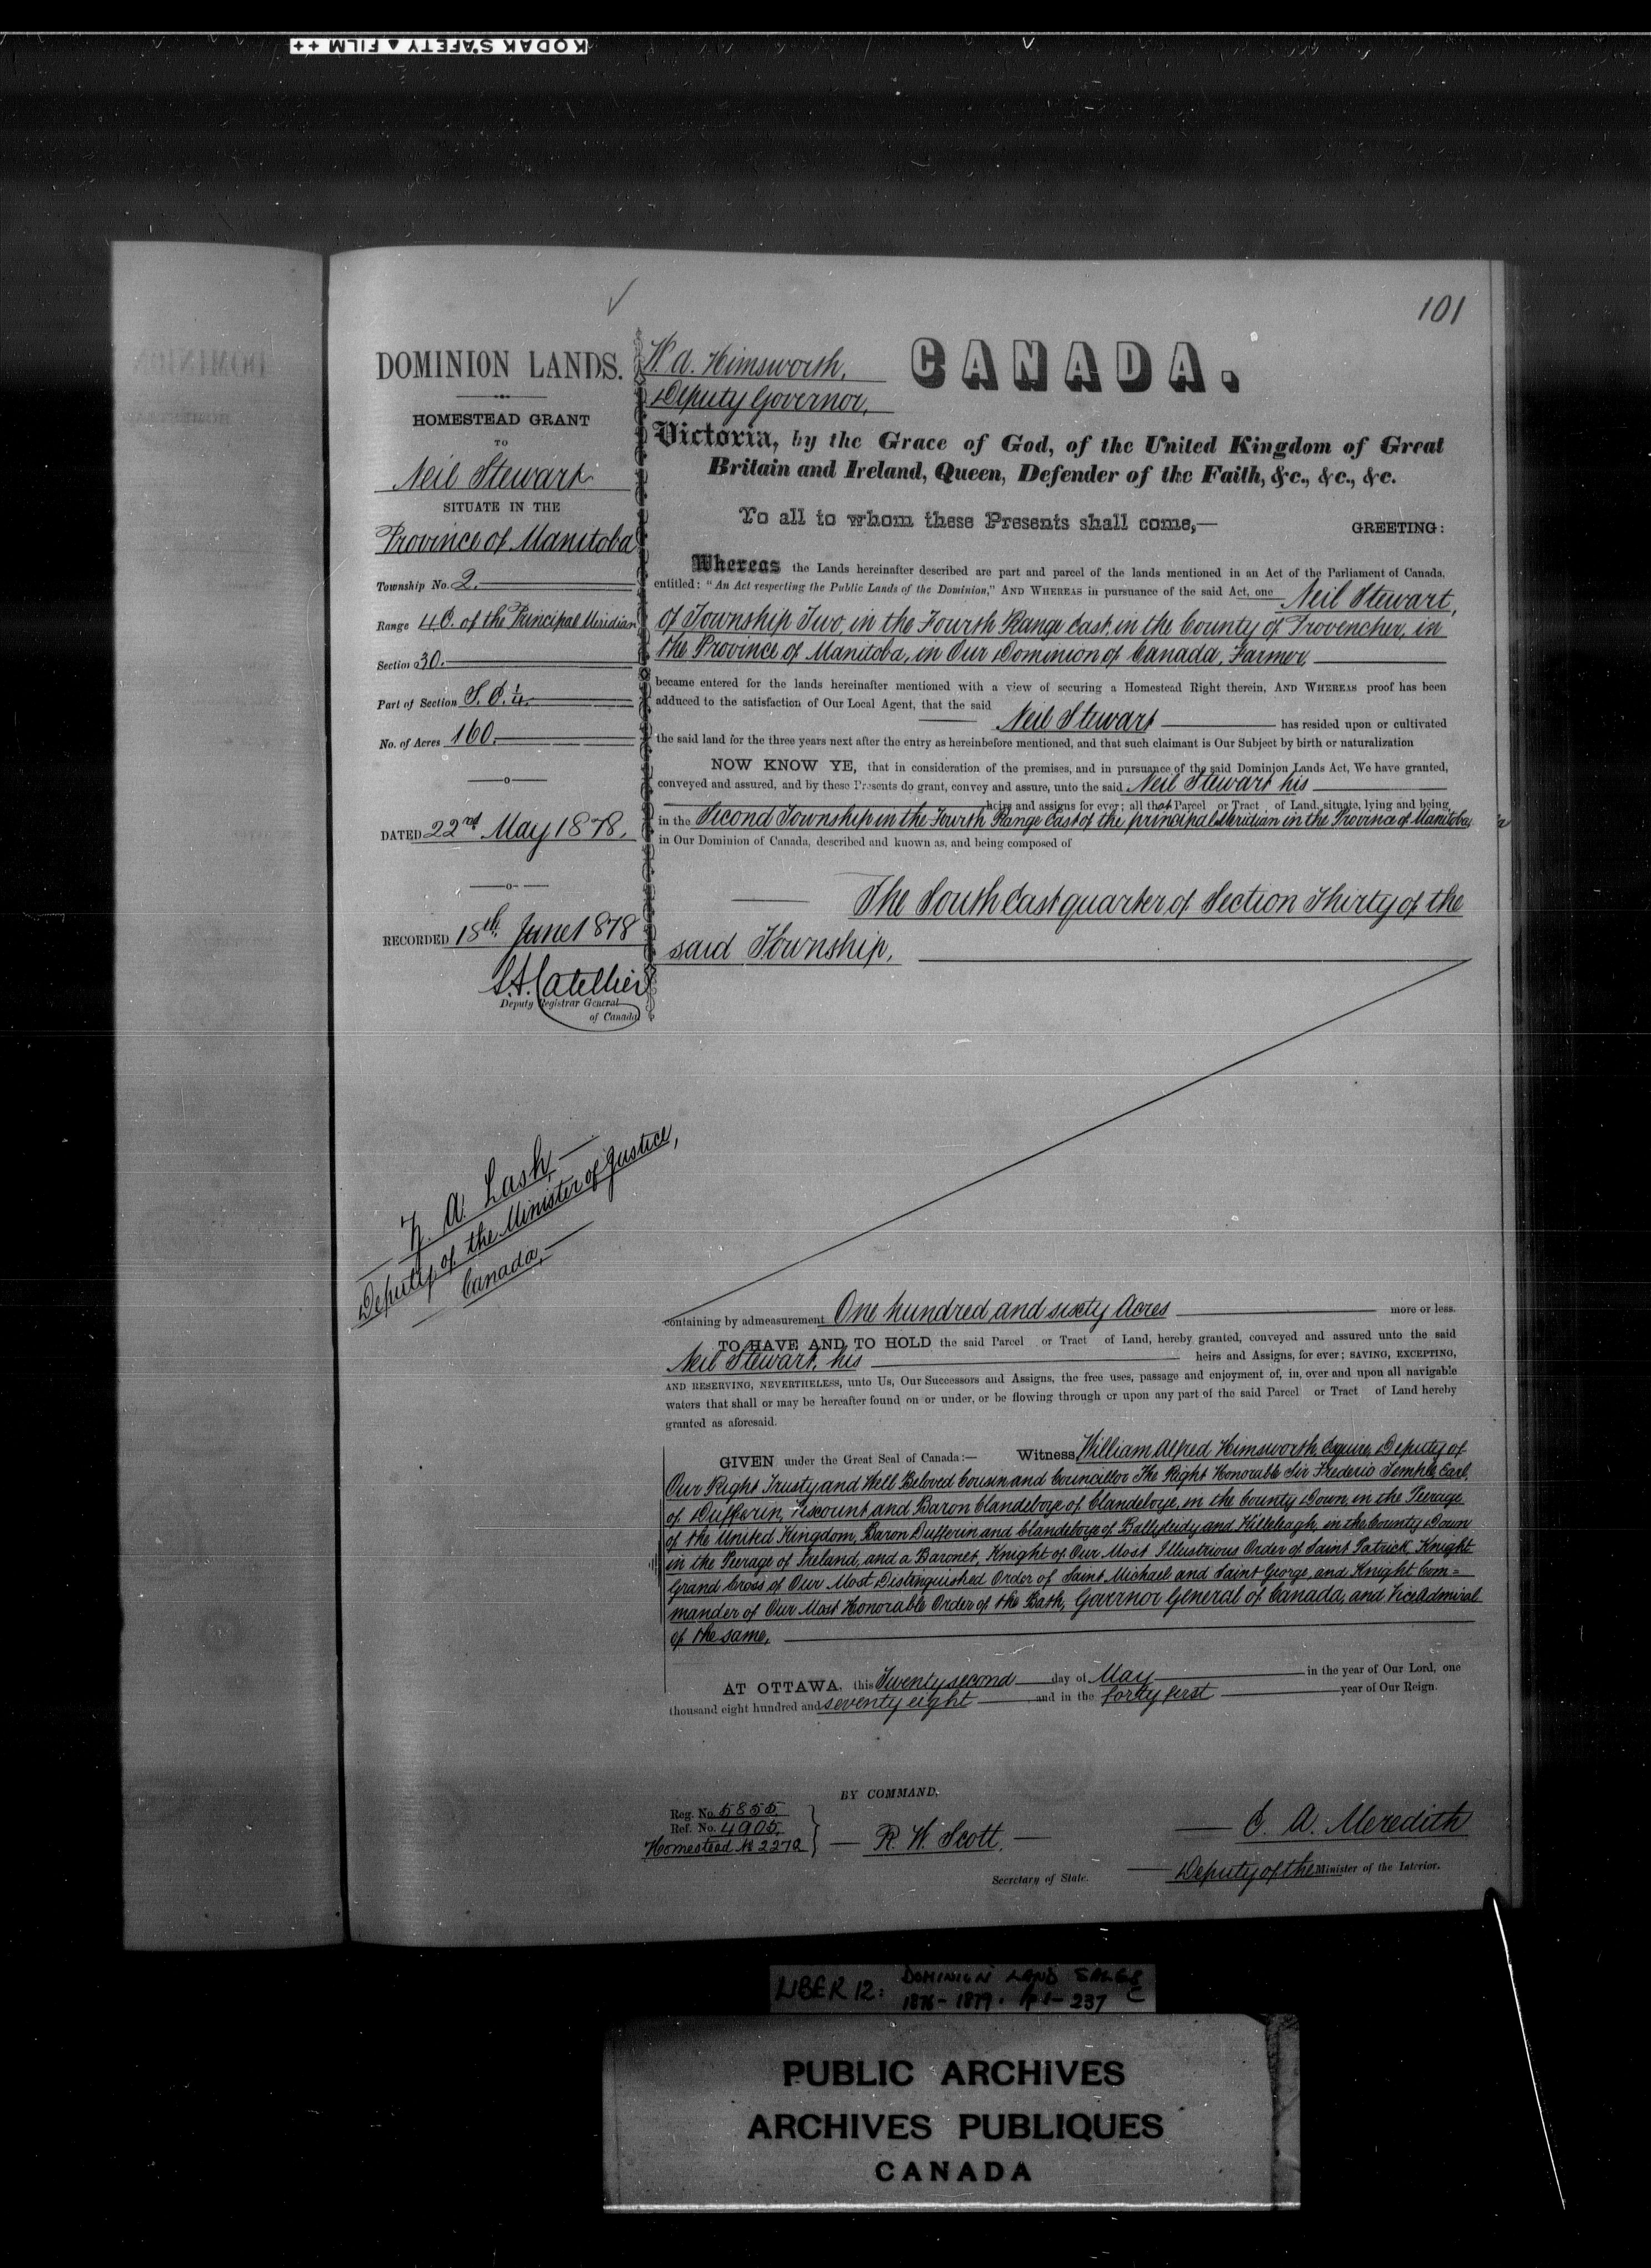 KODAK SAFETY ▲ FILM ++
101
DOMINION LANDS.
HOMESTEAD GRANT
TO
Neil Stewart
SITUATE IN THE
Province of Manitoba
Township No. 2.
Range 4 E. of the Principal Meridian
Section 30.
Part of Section S. E. ¼.
No. of Acres 160.
DATED 22nd May 1878.
RECORDED 18th June 1878
Deputy Registrar General
of Canada
A. Lash,
Deputy of the Minister of Justice,
Canada,
W. A. Himsworth,
Deputy Governor,
CANADA.
Victoria, by the Grace of God, of the United Kingdom of Great
Britain and Ireland, Queen, Defender of the Faith, &c., &c., &c.
To all to whom these Presents shall come,—
GREETING:
Whereas the Lands hereinafter described are part and parcel of the lands mentioned in an Act of the Parliament of Canada,
entitled: "An Act respecting the Public Lands of the Dominion," AND WHEREAS in pursuance of the said Act, one Neil Stewart,
of Township Two, in the Fourth Range East, in the County of Provencher, in
the Province of Manitoba, in Our Dominion of Canada, Farmer,
became entered for the lands hereinafter mentioned with a view of securing a Homestead Right therein, AND WHEREAS proof has been
adduced to the satisfaction of Our Local Agent, that the said
Neil Stewart has resided upon or cultivated
the said land for the three years next after the entry as hereinbefore mentioned, and that such claimant is Our Subject by birth or naturalization
NOW KNOW YE, that in consideration of the premises, and in pursuance of the said Dominion Lands Act, We have granted,
conveyed and assured, and by these Presents do grant, convey and assure, unto the said Neil Stewart his
heirs and assigns for ever; all that Parcel or Tract of Land, situate, lying and being,
in the Second Township in the Fourth Range East of the principal Meridian in the Province of Manitoba,
in Our Dominion of Canada, described and known as, and being composed of
The South East quarter of Section Thirty of the
said Township,
containing by admeasurement One hundred and sixty Acres more or less.
TO HAVE AND TO HOLD the said Parcel or Tract of Land, hereby granted, conveyed and assured unto the said
Neil Stewart, his heirs and Assigns, for ever; SAVING, EXCEPTING,
AND RESERVING, NEVERTHELESS, unto Us, Our Successors and Assigns, the free uses, passage and enjoyment of, in, over and upon all navigable
waters that shall or may be hereafter found on or under, or be flowing through or upon any part of the said Parcel or Tract of Land hereby
granted as aforesaid.
GIVEN under the Great Seal of Canada:— Witness, William Alfred Himsworth, Esquire, Deputy of
Our Right Trusty and Well Beloved Cousin and Councillor The Right Honorable Sir Frederic Temple, Earl,
of Dufferin, Viscount and Baron Clandeboye of Clandeboye, in the County Down, in the Peerage
of the United Kingdom, Baron Dufferin and Clandeboye of Ballyleidy and Killeleagh, in the County Down
in the Peerage of Ireland, and a Baronet, Knight of Our Most Illustrious Order of Saint Patrick, Knight
Grand Cross of Our Most Distinguished Order of Saint Michael and Saint George, and Knight Com=
mander of Our Most Honorable Order of the Bath, Governor General of Canada, and Vice Admiral
of the same,
AT OTTAWA, this Twenty second day of May in the year of Our Lord, one
thousand eight hundred and seventy eight and in the forty first year of Our Reign.
BY COMMAND,
Reg. No. 5855.
Ref. No. 4905.
Homestead No
R. W. Scott,
Secretary of State.
E. A. Meredith
Deputy of the Minister of the Interior.
LIBER 12: DOMINION LAND SALES
1876 - 1879. pp 1 - 237
PUBLIC ARCHIVES
ARCHIVES PUBLIQUES
CANADA